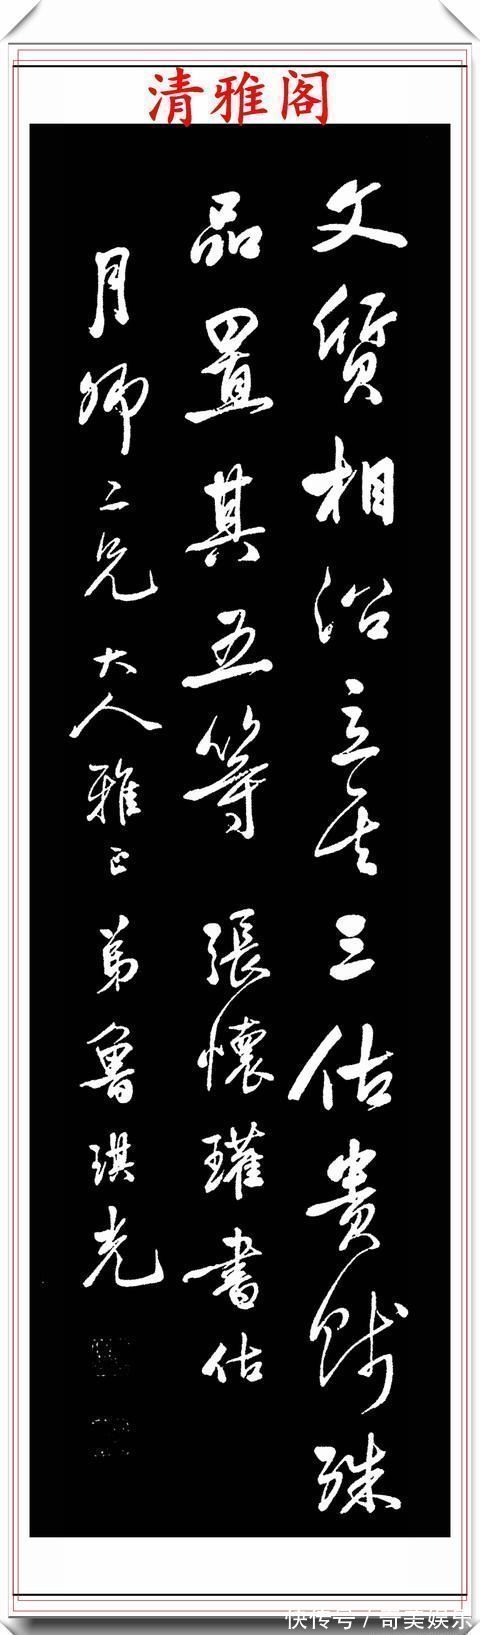 清雅阁
文質相沿立其三估貴賤殊
品置其五等 張懷瓘書估
月師二兄大人雅正 弟魯琪光
快传号/奇美娱乐